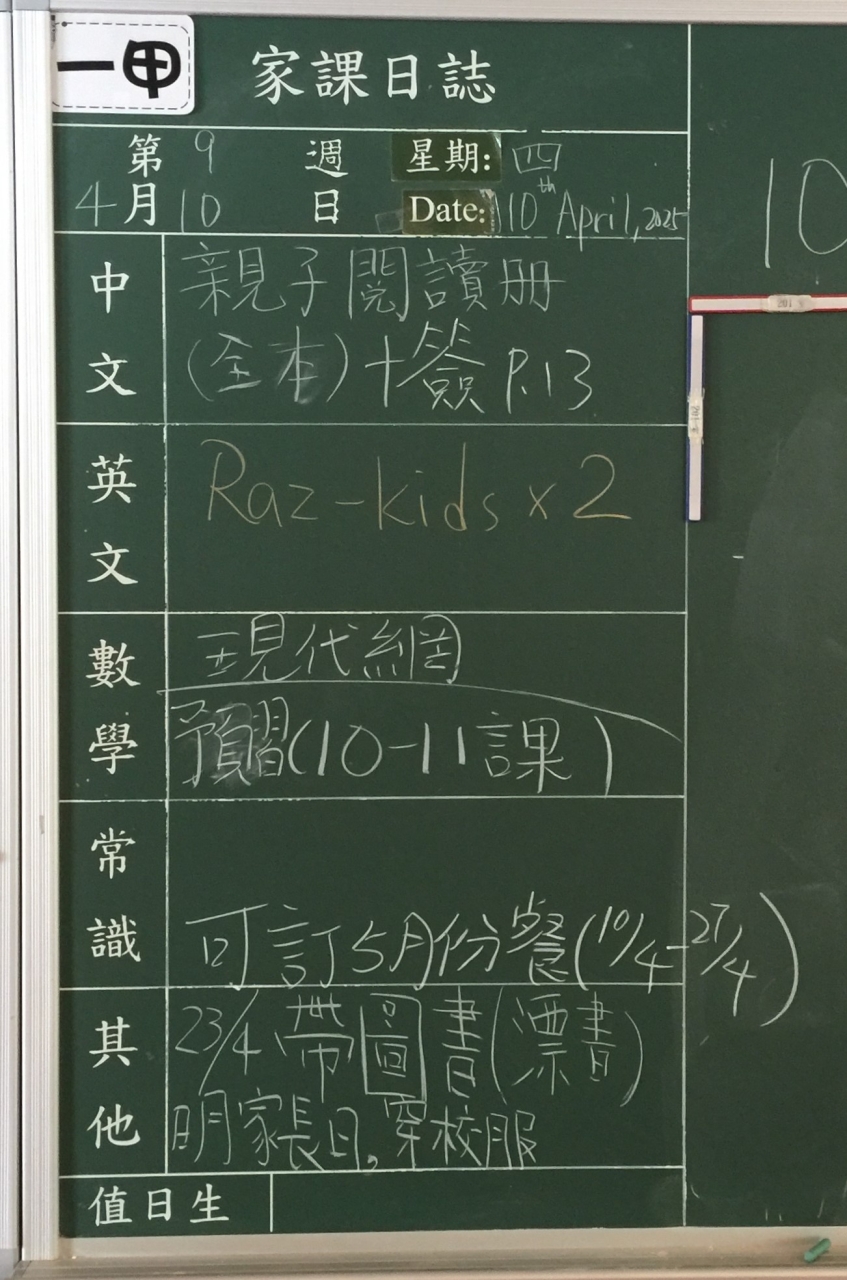 一甲 家課日誌
第9週 星期: 四
4月10日 Date: 10th April, 2025
10
中文
親子閱讀册
(全本)+簽 P.13
英文
Raz-kids x 2
數學
現代網
預習(10-11課)
常識
可訂5月份餐(10/4-27/4)
其他
23/4 帶圖書(漂書)
明家長日,穿校服
值日生